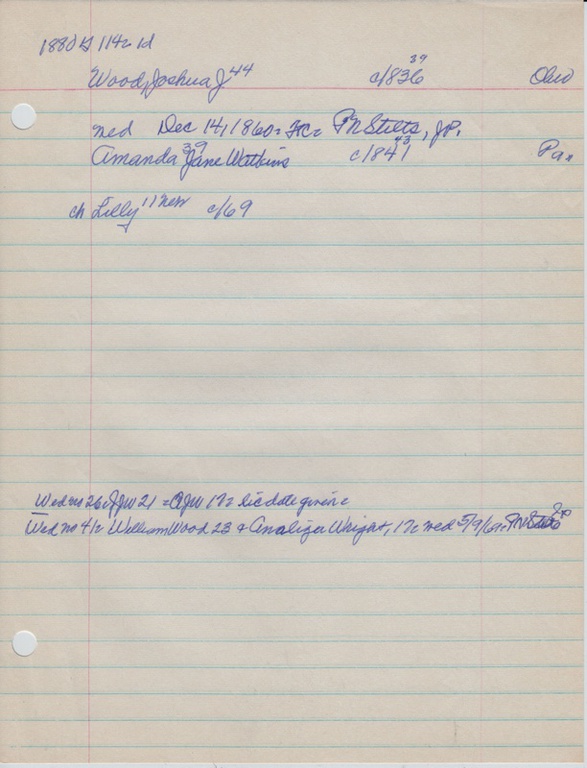 1880 114= 1d
37
Wood, Joshua J 44 c/1836 Ohio
med Dec 14, 1860 = = PN Stilts, JP.
Amanda 39 Jane Watkins c/1841 43 Pa.
ch Lilly 11 c/69
Wed no 26 = JJW 21 = AJW 17 = lic date given =
Wed no 41 = William Wood 23 & Analiza Wright, 17 = med 5/9/69 = PN Stilts